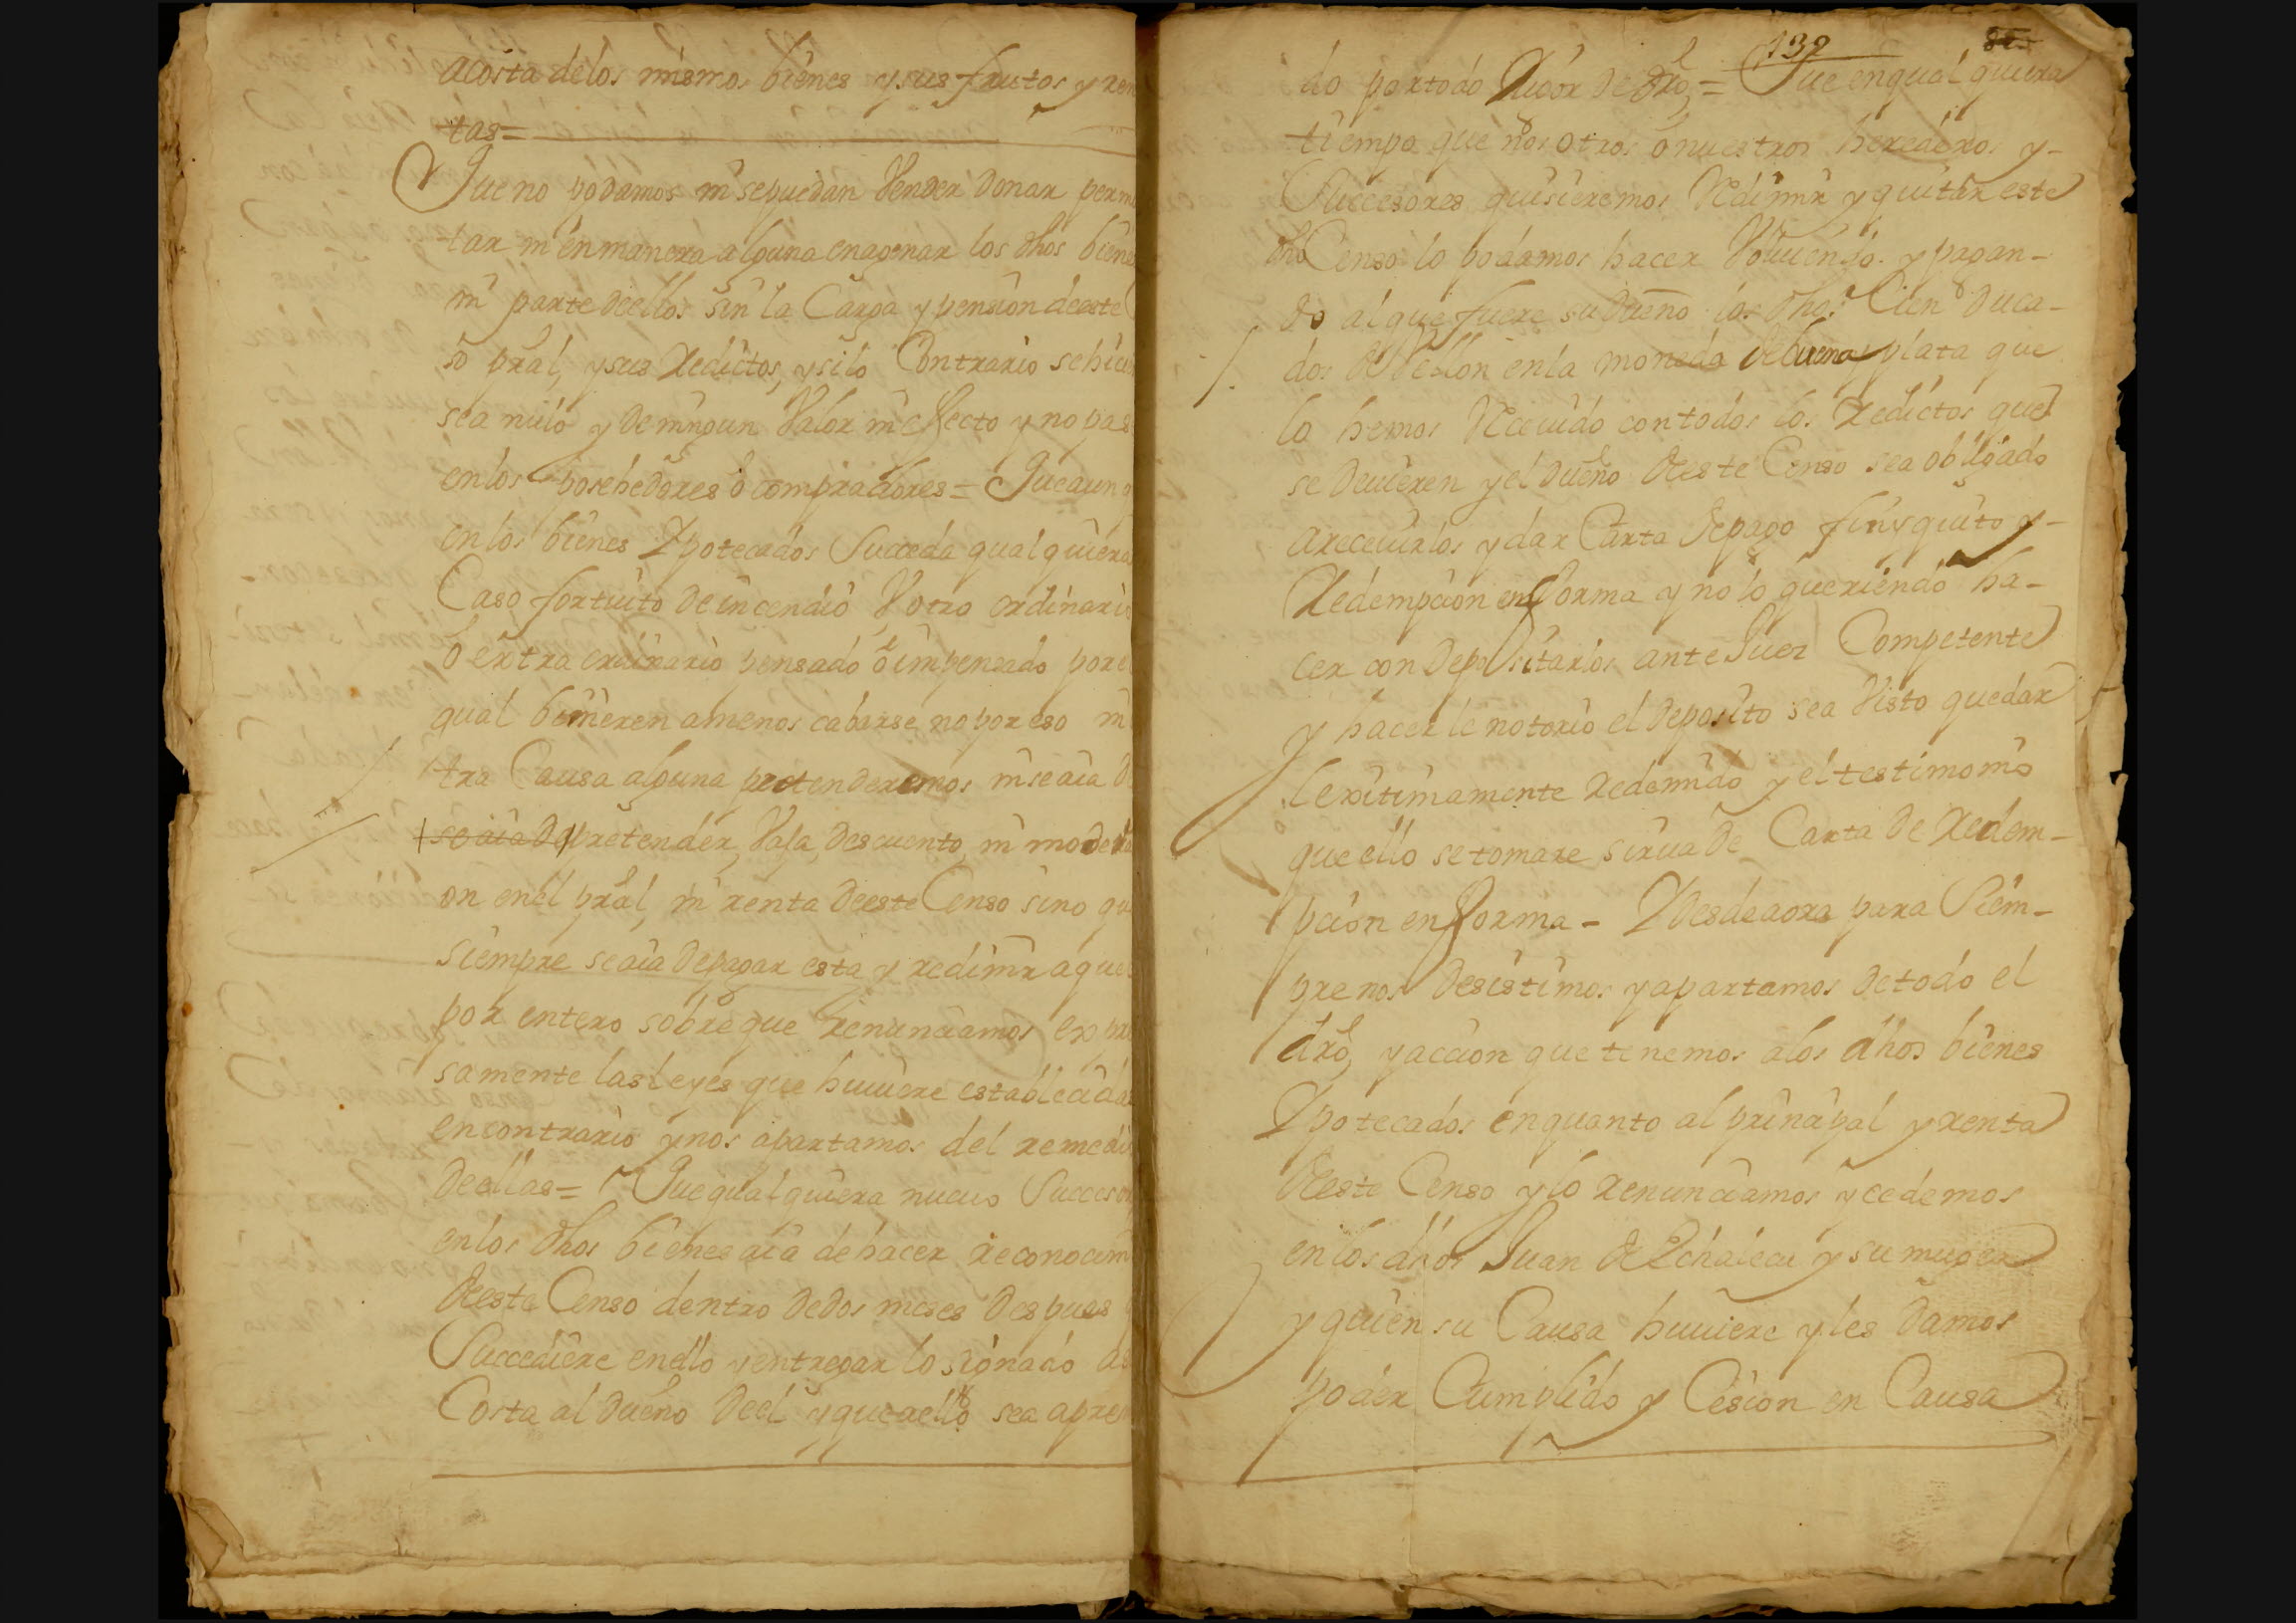 acosta delos mismos bienes ysus frutos y ren
tas=
Que no podamos ni sepuedan Vender donar permu
tar ni enmanera alguna enagenar los dhos biene
ni parte deellos sin la Carga y pension deeste
so pral, ysus Redictos, ysilo Contrario sehici
sea nulo y de ningun Valor ni efecto y no pas
enlos posehedores o compradores = Que aunq
enlos bienes Ypotecados Succeda qualquiera
Caso fortuito de incendio V otro ordinario
o extraordinario pensado o impensado por e
qual binieren amenos cabarse no por eso ni
tra Causa alguna pretenderemos ni seaia d
seaia de pretender, Vaja, descuento, ni mode
on enel pral, ni renta deeste Censo sino qu
siempre seaia depagar esta y redimir aque
por entero sobreque renunciamos expre
samente lasleyes que huuiere establecidas
encontrario ynos apartamos del remedio
deellas= Quequalquiera nueuo Succesor
enlos dhos bienes aia dehacer reconocim
deeste Censo dentro dedos meses despues
Succediere enello yentregar lo signado as
Costa al dueño deel yqueaello sea apre
139
do portodo Rigor de dro, = Que enqual quiera
tiempo que nosotros o nuestros herederos y-
Successores quisieremos Redimir y quitar este
dho Censo lo podamos hacer Voluiendo y pagan-
do alque fuere sudueño los dhos Cien duca-
dos de Vellon enla moneda debuena plata que
lo hemos Receuido contodos los Redictos que
se deuieren yel dueño deeste Censo sea obligado
areceuirlos ydar Carta depago finyquito y-
Redempcion enforma y nolo queriendo ha-
cer con depositarlos ante Juez Competente
y hacerle notorio el deposito sea Visto quedar
lexitimamente redemido y eltestimonio
queello setomare sirua de Carta de Redem-
pcion enforma - Ydesdeaora para Siem-
pre nos desistimos yapartamos detodo el
dro, yaccion que tenemos alos dhos bienes
Ypotecados enquanto al principal yrenta
deeste Censo ylo renunciamos ycedemos
enlos dhos Juan de Echalecu y su muger
yquien su Causa huuiere yles damos
poder Cumplido y Cesion en Causa